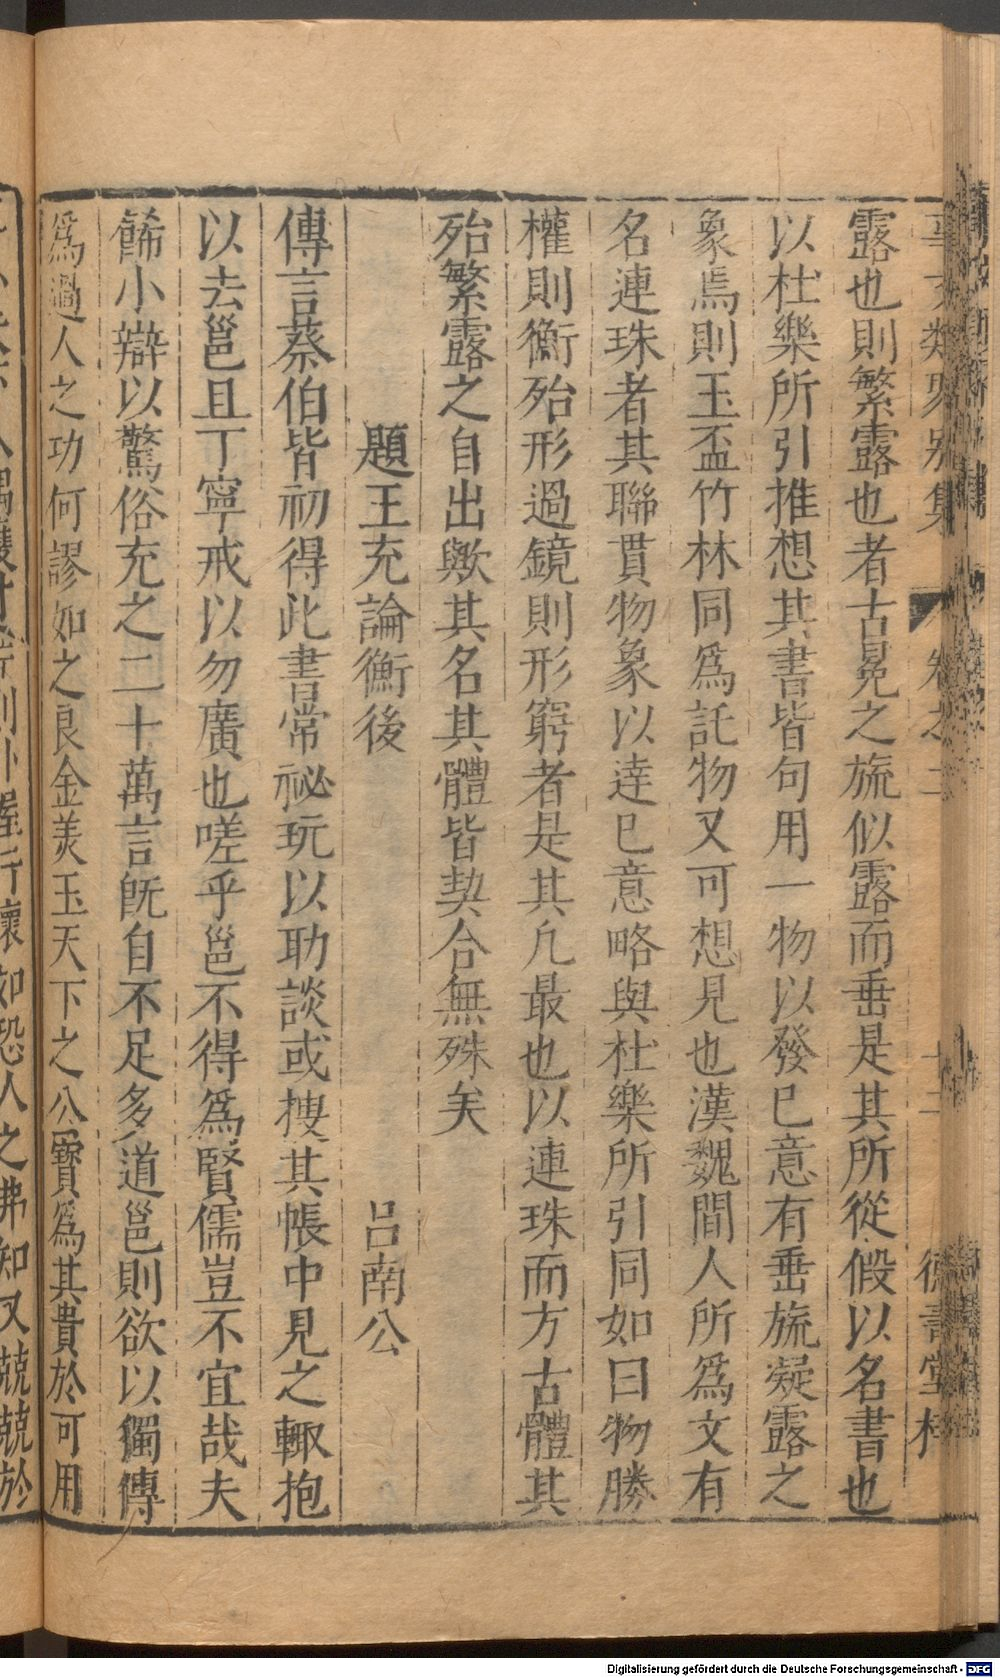 事文類聚別集 卷之二 十二 德壽堂梓
露也則繁露也者古冕之旒似露而垂是其所從假以名書也
以杜樂所引推想其書皆句用一物以發已意有垂旒凝露之
象焉則玉盃竹林同爲託物又可想見也漢魏間人所爲文有
名連珠者其聯貫物象以逹已意略與杜樂所引同如曰物勝
權則衡殆形過鏡則形窮者是其凢最也以連珠而方古體其
殆繁露之自出歟其名其體皆契合無殊矣
題王充論衡後 呂南公
傳言蔡伯喈初得此書常祕玩以助談或搜其帳中見之輙抱
以去邕且丁寧戒以勿廣也嗟乎邕不得爲賢儒豈不宜哉夫
餙小辯以驚俗充之二十萬言旣自不足多道邕則欲以獨傳
爲過人之功何謬如之良金美玉天下之公寶爲其貴於可用
人之弗知又兢兢於
Digitalisierung gefördert durch die Deutsche Forschungsgemeinschaft - DFG